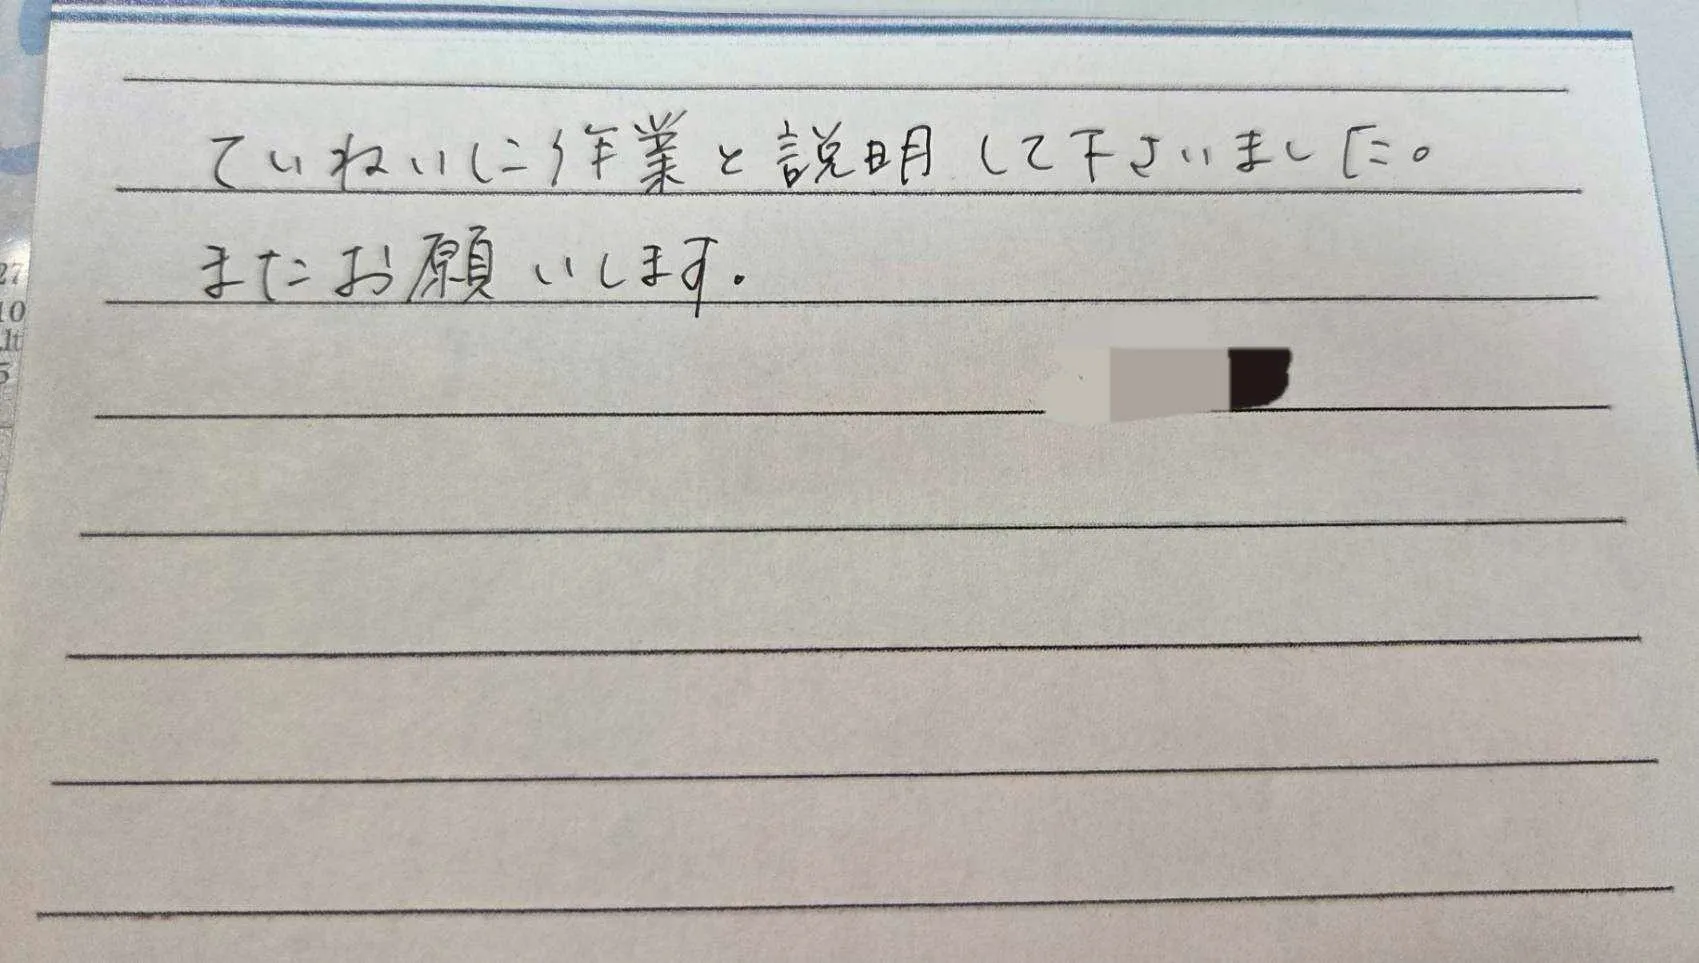 ていねいに作業と説明して下さいました。
またお願いします.
27
10
5